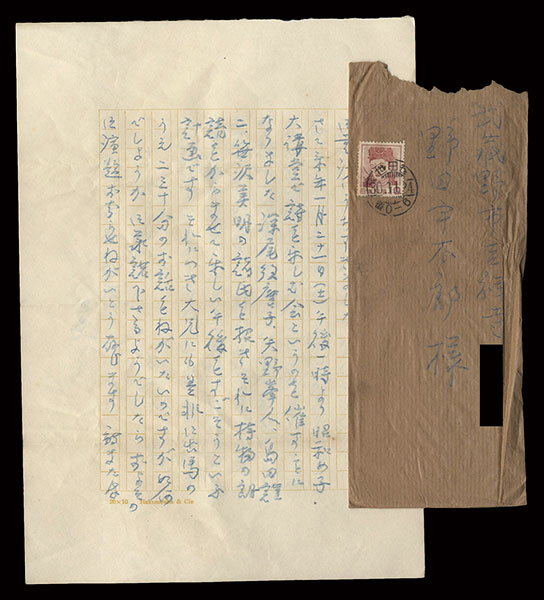 さて来年一月二十一日(土)午後一時より昭和女子
大講堂で詩を楽しむ会というのを催すことに
なりました 深尾須磨子、矢野峯人、島田謹
二、笹沢美明の諸氏を招き それに持物の朗
読をからませて楽しい午後をすごそうといふ
計画です それにつき大兄にも是非に出馬の
うえ二三十分のお話をねがいたいのですが
でしようか 御承諾下さるようでしたら すぐその
御演題お知らせねがいとう存じます
20×10
武蔵野市吉祥寺
野田宇太郎様